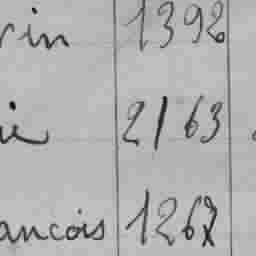 rin 1392
ie 2163
ancois 1267